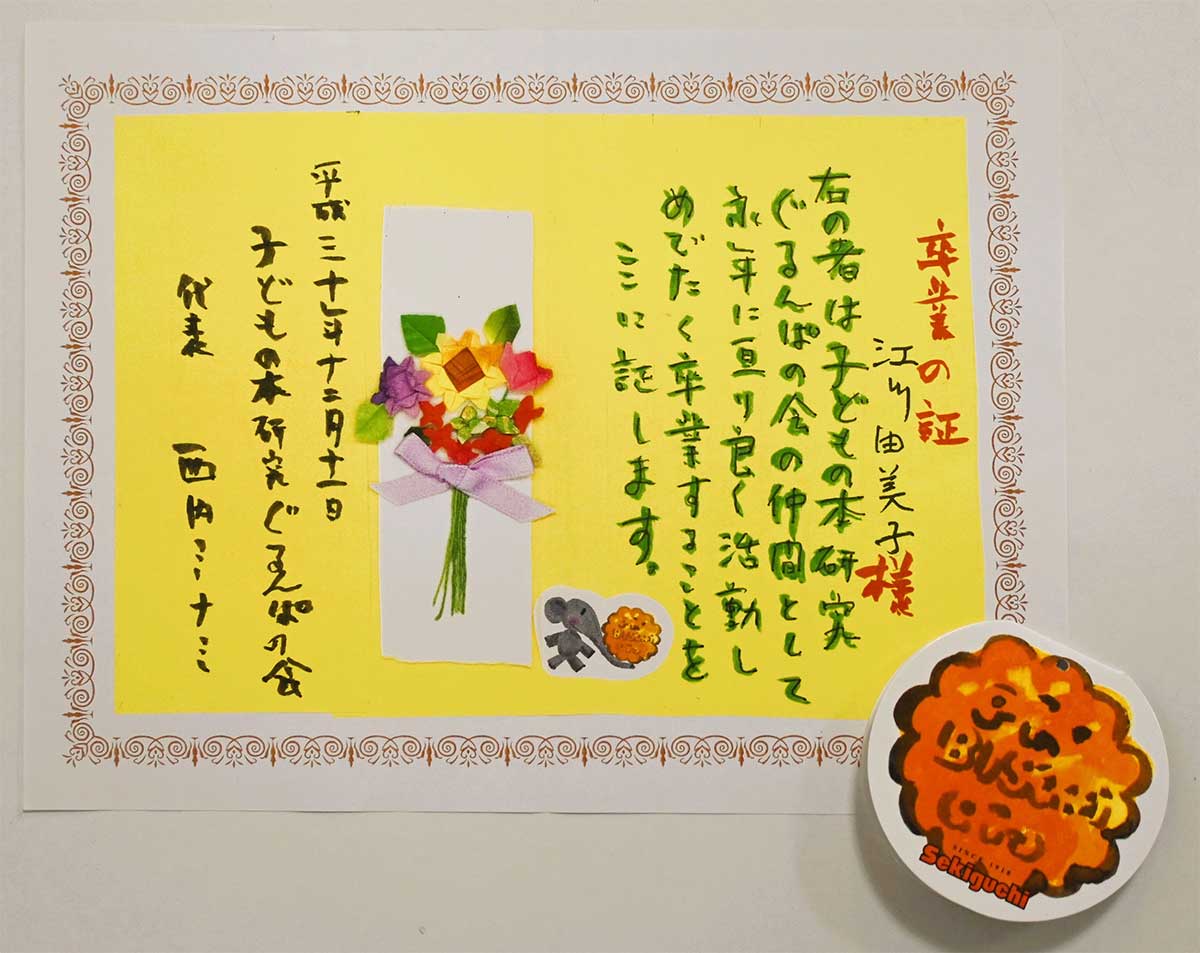 卒業の証
江川由美子様
右の者は子どもの本研究
ぐるんぱの会の仲間として
永年に亘り良く活動し
めでたく卒業することを
ここに証します。
平成三十年十二月十一日
子どもの本研究ぐるんぱの会
代表 西内ミナミ
SINCE 1918
Sekiguchi